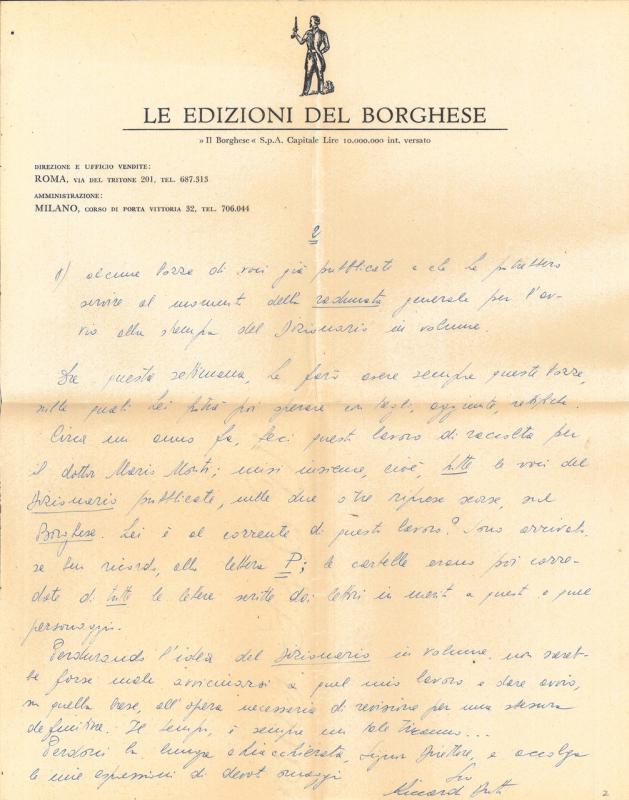 LE EDIZIONI DEL BORGHESE
» Il Borghese « S.p.A. Capitale Lire 10.000.000 int. versato
DIREZIONE E UFFICIO VENDITE:
ROMA, VIA DEL TRITONE 201, TEL. 687.313
AMMINISTRAZIONE:
MILANO, CORSO DI PORTA VITTORIA 32, TEL. 706.044
2
alcune bozze di voci già pubblicate e che Le potrebbero
servire al momento della radunata generale per l'av-
vio alla stampa del Dizionario in volume.
questa settimana, Le farò avere sempre queste bozze,
sulle quali Lei potrà poi operare con tagli, aggiunte, rettifiche.
Circa un anno fa, feci questo lavoro di raccolta per
il dottor Mario Monti; misi insieme, cioè, tutte le voci del
Dizionario pubblicate, nelle due o tre riprese scorse, sul
Borghese. Lei è al corrente di questo lavoro? Sono arrivato,
se ben ricordo, alla lettera P; le cartelle erano poi corre-
date di tutte le lettere scritte dai lettori in merito a questo o quel
personaggio.
Perdurando l'idea del Dizionario in volume, non sareb-
be forse male avvicinarsi a quel mio lavoro e dare avvio,
su quella base, all'opera necessaria di revisione per una stesura
definitiva. Il tempo, è sempre un tale tiranno...
Perdoni la lunga chiacchierata, signor Direttore, e accolga
le mie espressioni di devoto omaggio
Suo
2